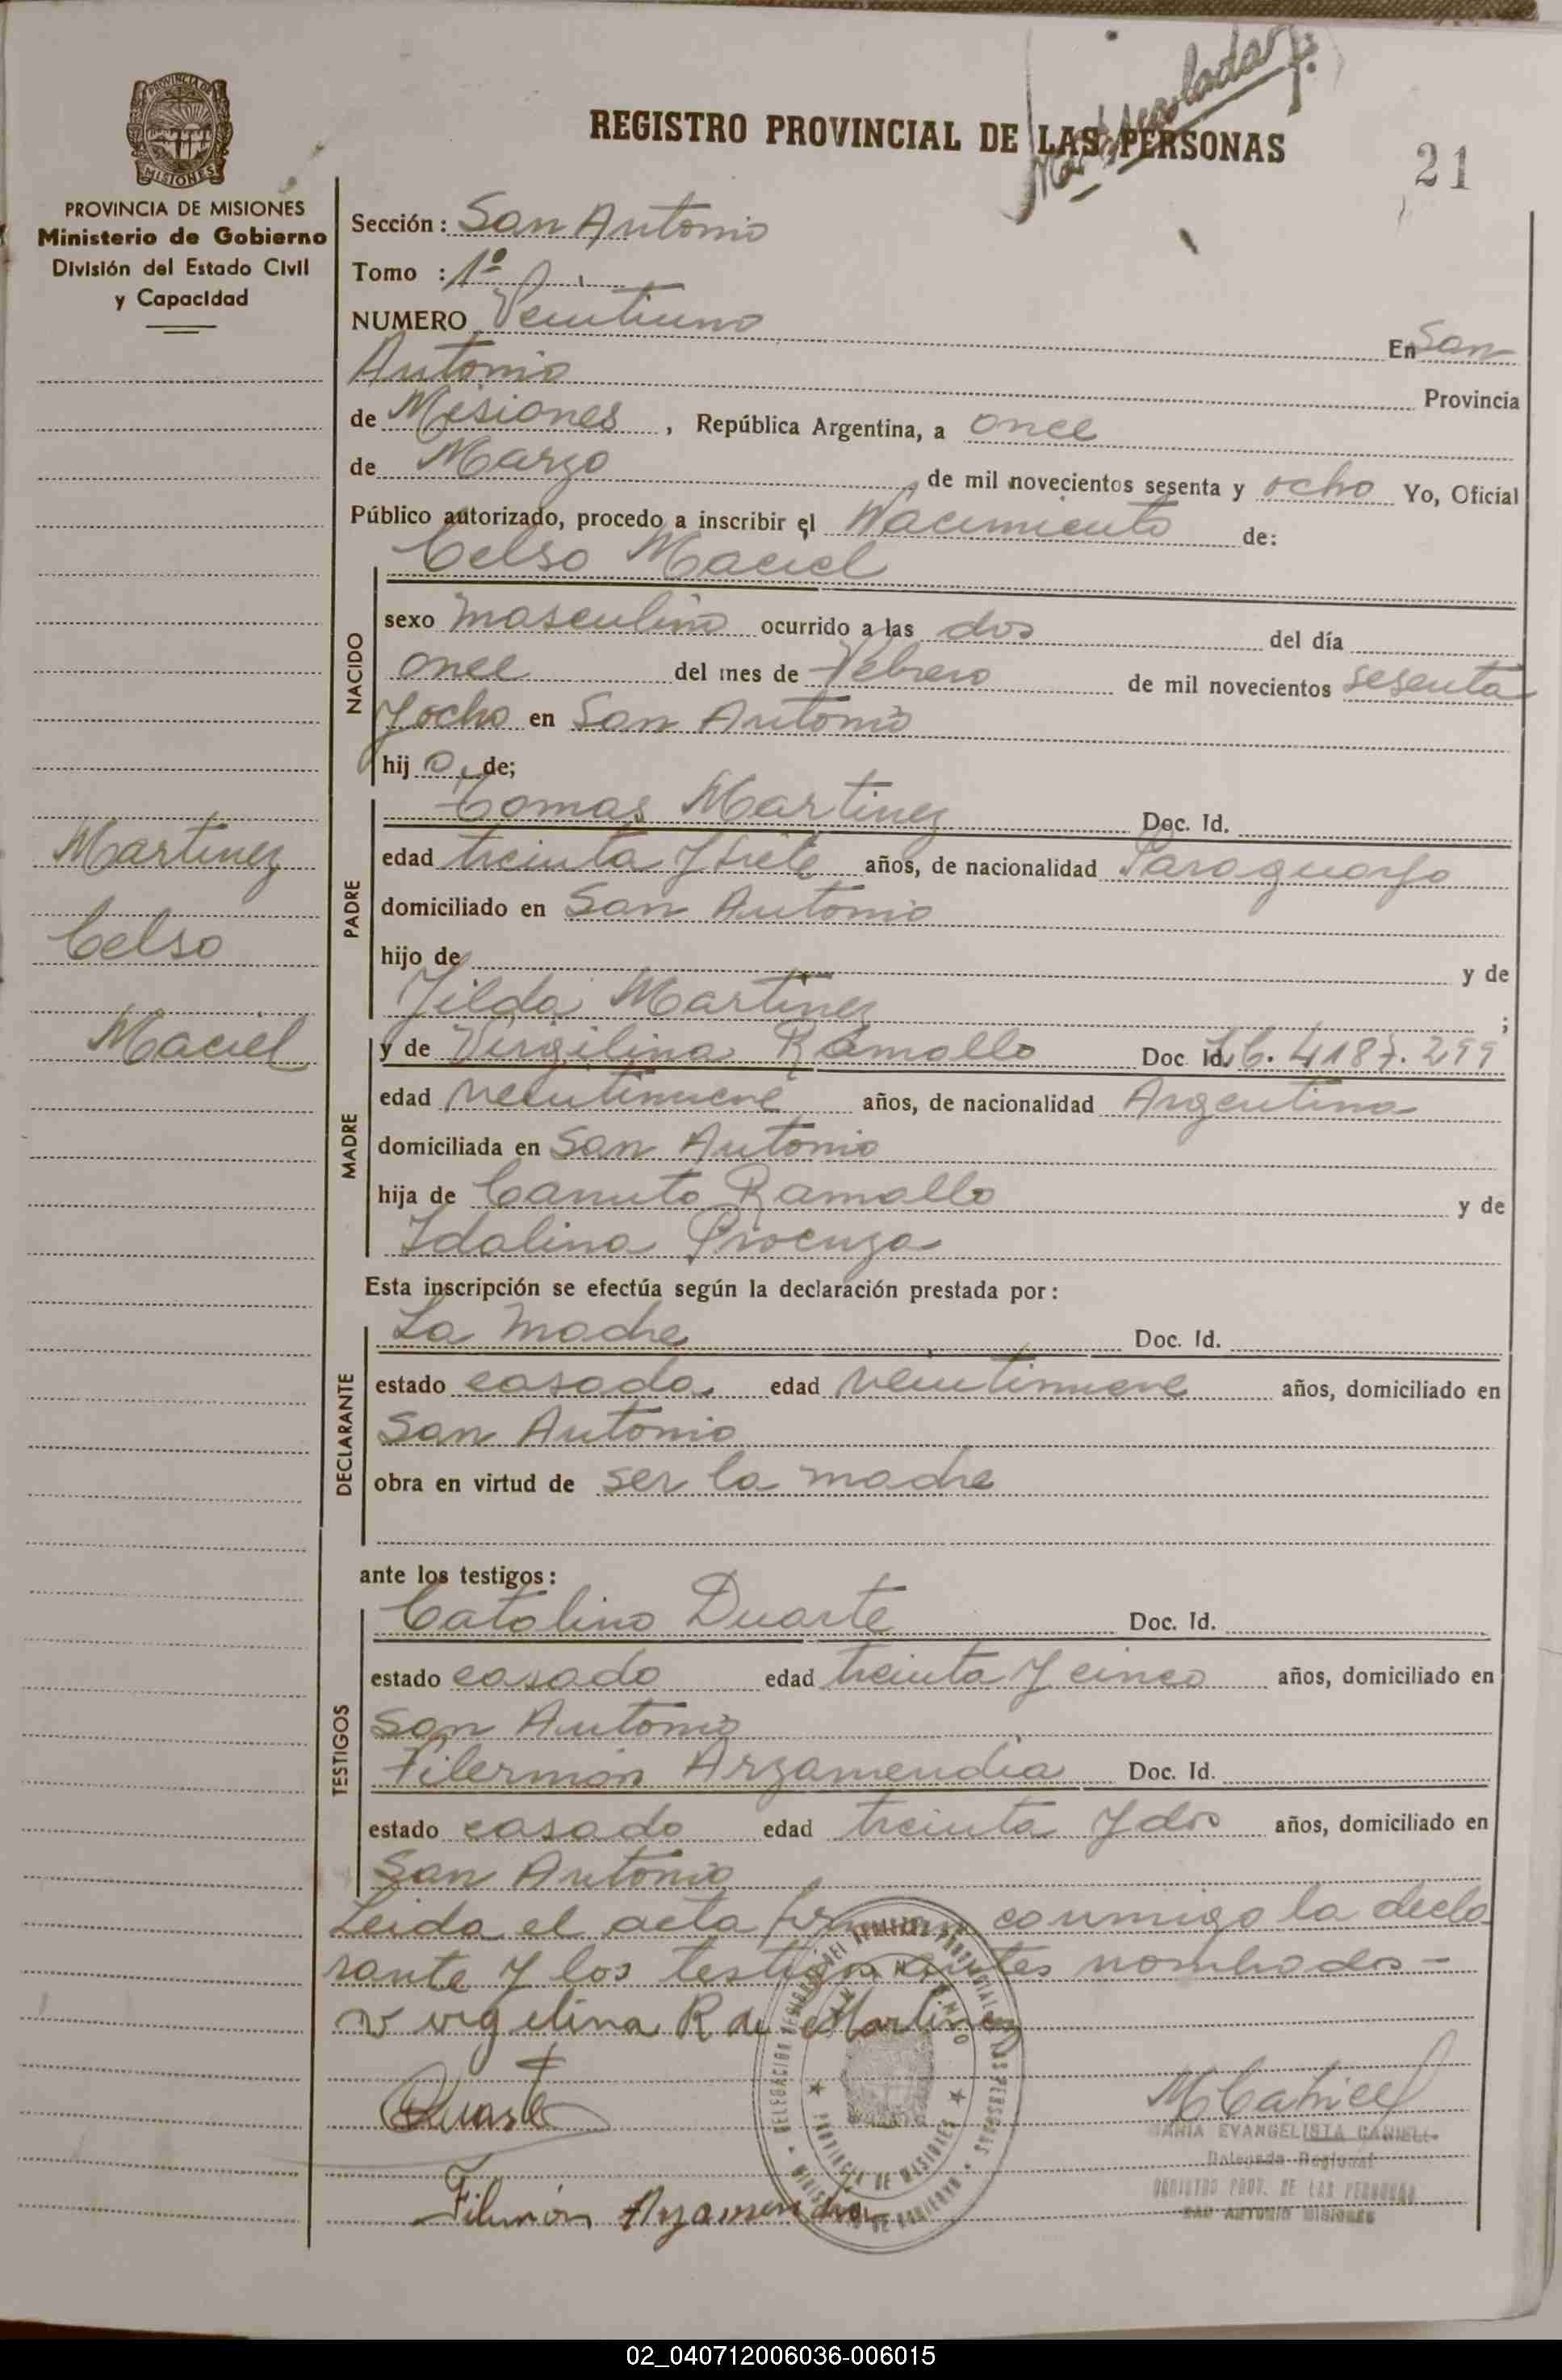 REGISTRO PROVINCIAL DE LAS PERSONAS
21
PROVINCIA DE MISIONES
Ministerio de Gobierno
División del Estado Civil
y Capacidad
Sección: San Antonio
Tomo : 1º
NUMERO Veintiuno
En San
Antonio
Provincia
de Misiones, República Argentina, a once
de Marzo de mil novecientos sesenta y ocho Yo, Oficial
Público autorizado, procedo a inscribir el Nacimiento de:
Celso Maciel
NACIDO
sexo masculino ocurrido a las dos del día
once del mes de Febrero de mil novecientos sesenta
y ocho en San Antonio
hij o de;
PADRE
Tomas Martinez Doc. Id.
edad treinta y siete años, de nacionalidad Paraguayo
domiciliado en San Antonio
hijo de y de
Jilda Martinez ;
MADRE
y de Virgilina Ramallo Doc. Id. L.C. 4187.299
edad veintinueve años, de nacionalidad Argentina
domiciliada en San Antonio
hija de Canuto Ramallo y de
Idalina Proenza
Martinez
Celso
Maciel
Esta inscripción se efectúa según la declaración prestada por:
DECLARANTE
La madre Doc. Id.
estado casada edad veintinueve años, domiciliado en
San Antonio
obra en virtud de ser la madre
ante los testigos:
TESTIGOS
Catalino Duarte Doc. Id.
estado casado edad treinta y cinco años, domiciliado en
San Antonio
Filermón Arzamendia Doc. Id.
estado casado edad treinta y dos años, domiciliado en
San Antonio
Leida el acta firman conmigo la decla
rante y los testigos antes nombrados -
virgilina R de Martinez
Duarte
Filemón Arzamendia
MARIA EVANGELISTA
Delegada Regional
REGISTRO PROV. DE LAS PERSONAS
SAN ANTONIO MISIONES
PROVINCIA DE MISIONES
02_040712006036-006015